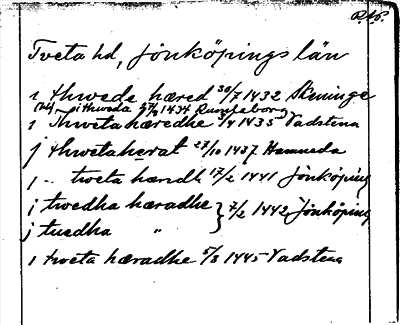 Tveta hd, Jönköpings län
i thwede hæred 30/7 1432 Skeninge
i thweda 1434 Rumlaborg
i thwetahæredhe 1435 Vadstena
j thwetaherat 27/10 1437 Hamneda
j - tweta hændh 17/2 1441 Jönköping
j twedha hæradhe } 7/2 1442 Jönköping
j tuedha "
i tweta hæradhe 5/8 1445 Vadstena